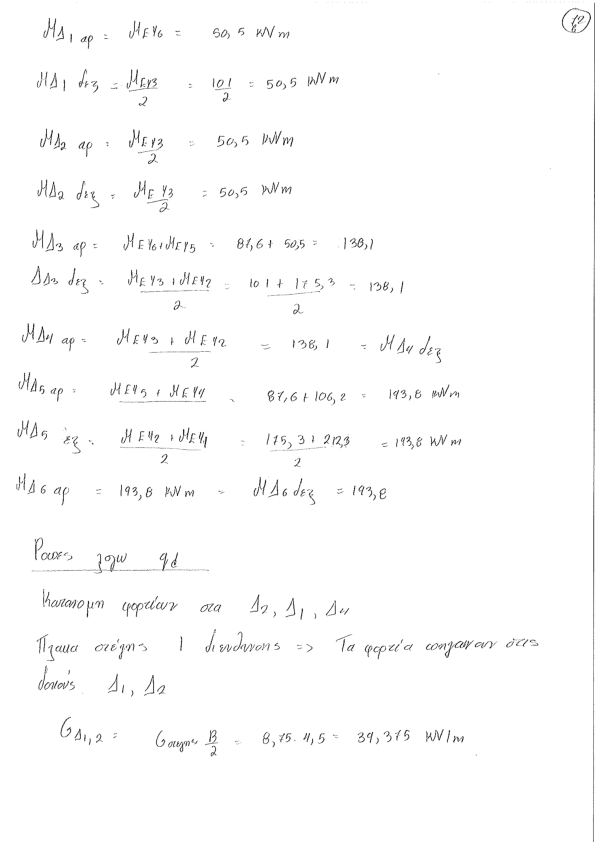 ΜΔ1 αρ = ΜΕΥ6 = 50,5 kNm
ΜΔ1 δεξ = ΜΕΥ3/2 = 101/2 = 50,5 kNm
ΜΔ2 αρ = ΜΕΥ3/2 = 50,5 kNm
ΜΔ2 δεξ = ΜΕΥ3/2 = 50,5 kNm
ΜΔ3 αρ = ΜΕΥ6+ΜΕΥ5 = 87,6 + 50,5 = 138,1
ΔΔ3 δεξ = ΜΕΥ3+ΜΕΥ2/2 = 101 + 175,3/2 = 138,1
ΜΔ4 αρ = ΜΕΥ3 + ΜΕΥ2/2 = 138,1 = ΜΔ4 δεξ
ΜΔ5 αρ = ΜΕΥ5 + ΜΕΥ4 = 87,6 + 106,2 = 193,8 kNm
ΜΔ5 εξ = ΜΕΥ2 + ΜΕΥ1/2 = 175,3 + 212,3/2 = 193,8 kNm
ΜΔ6 αρ = 193,8 kNm = ΜΔ6 δεξ = 193,8
Ροπες λογω qd
Κατανομη φορτίων στα Δ2, Δ1, Δ4
Πλακα στέγης 1 διευθυνσης => Τα φορτία πηγαινουν στις
δοκούς Δ1, Δ2
GΔ1,2 = Gστεγης B/2 = 8,75 · 4,5 = 39,375 kN/m